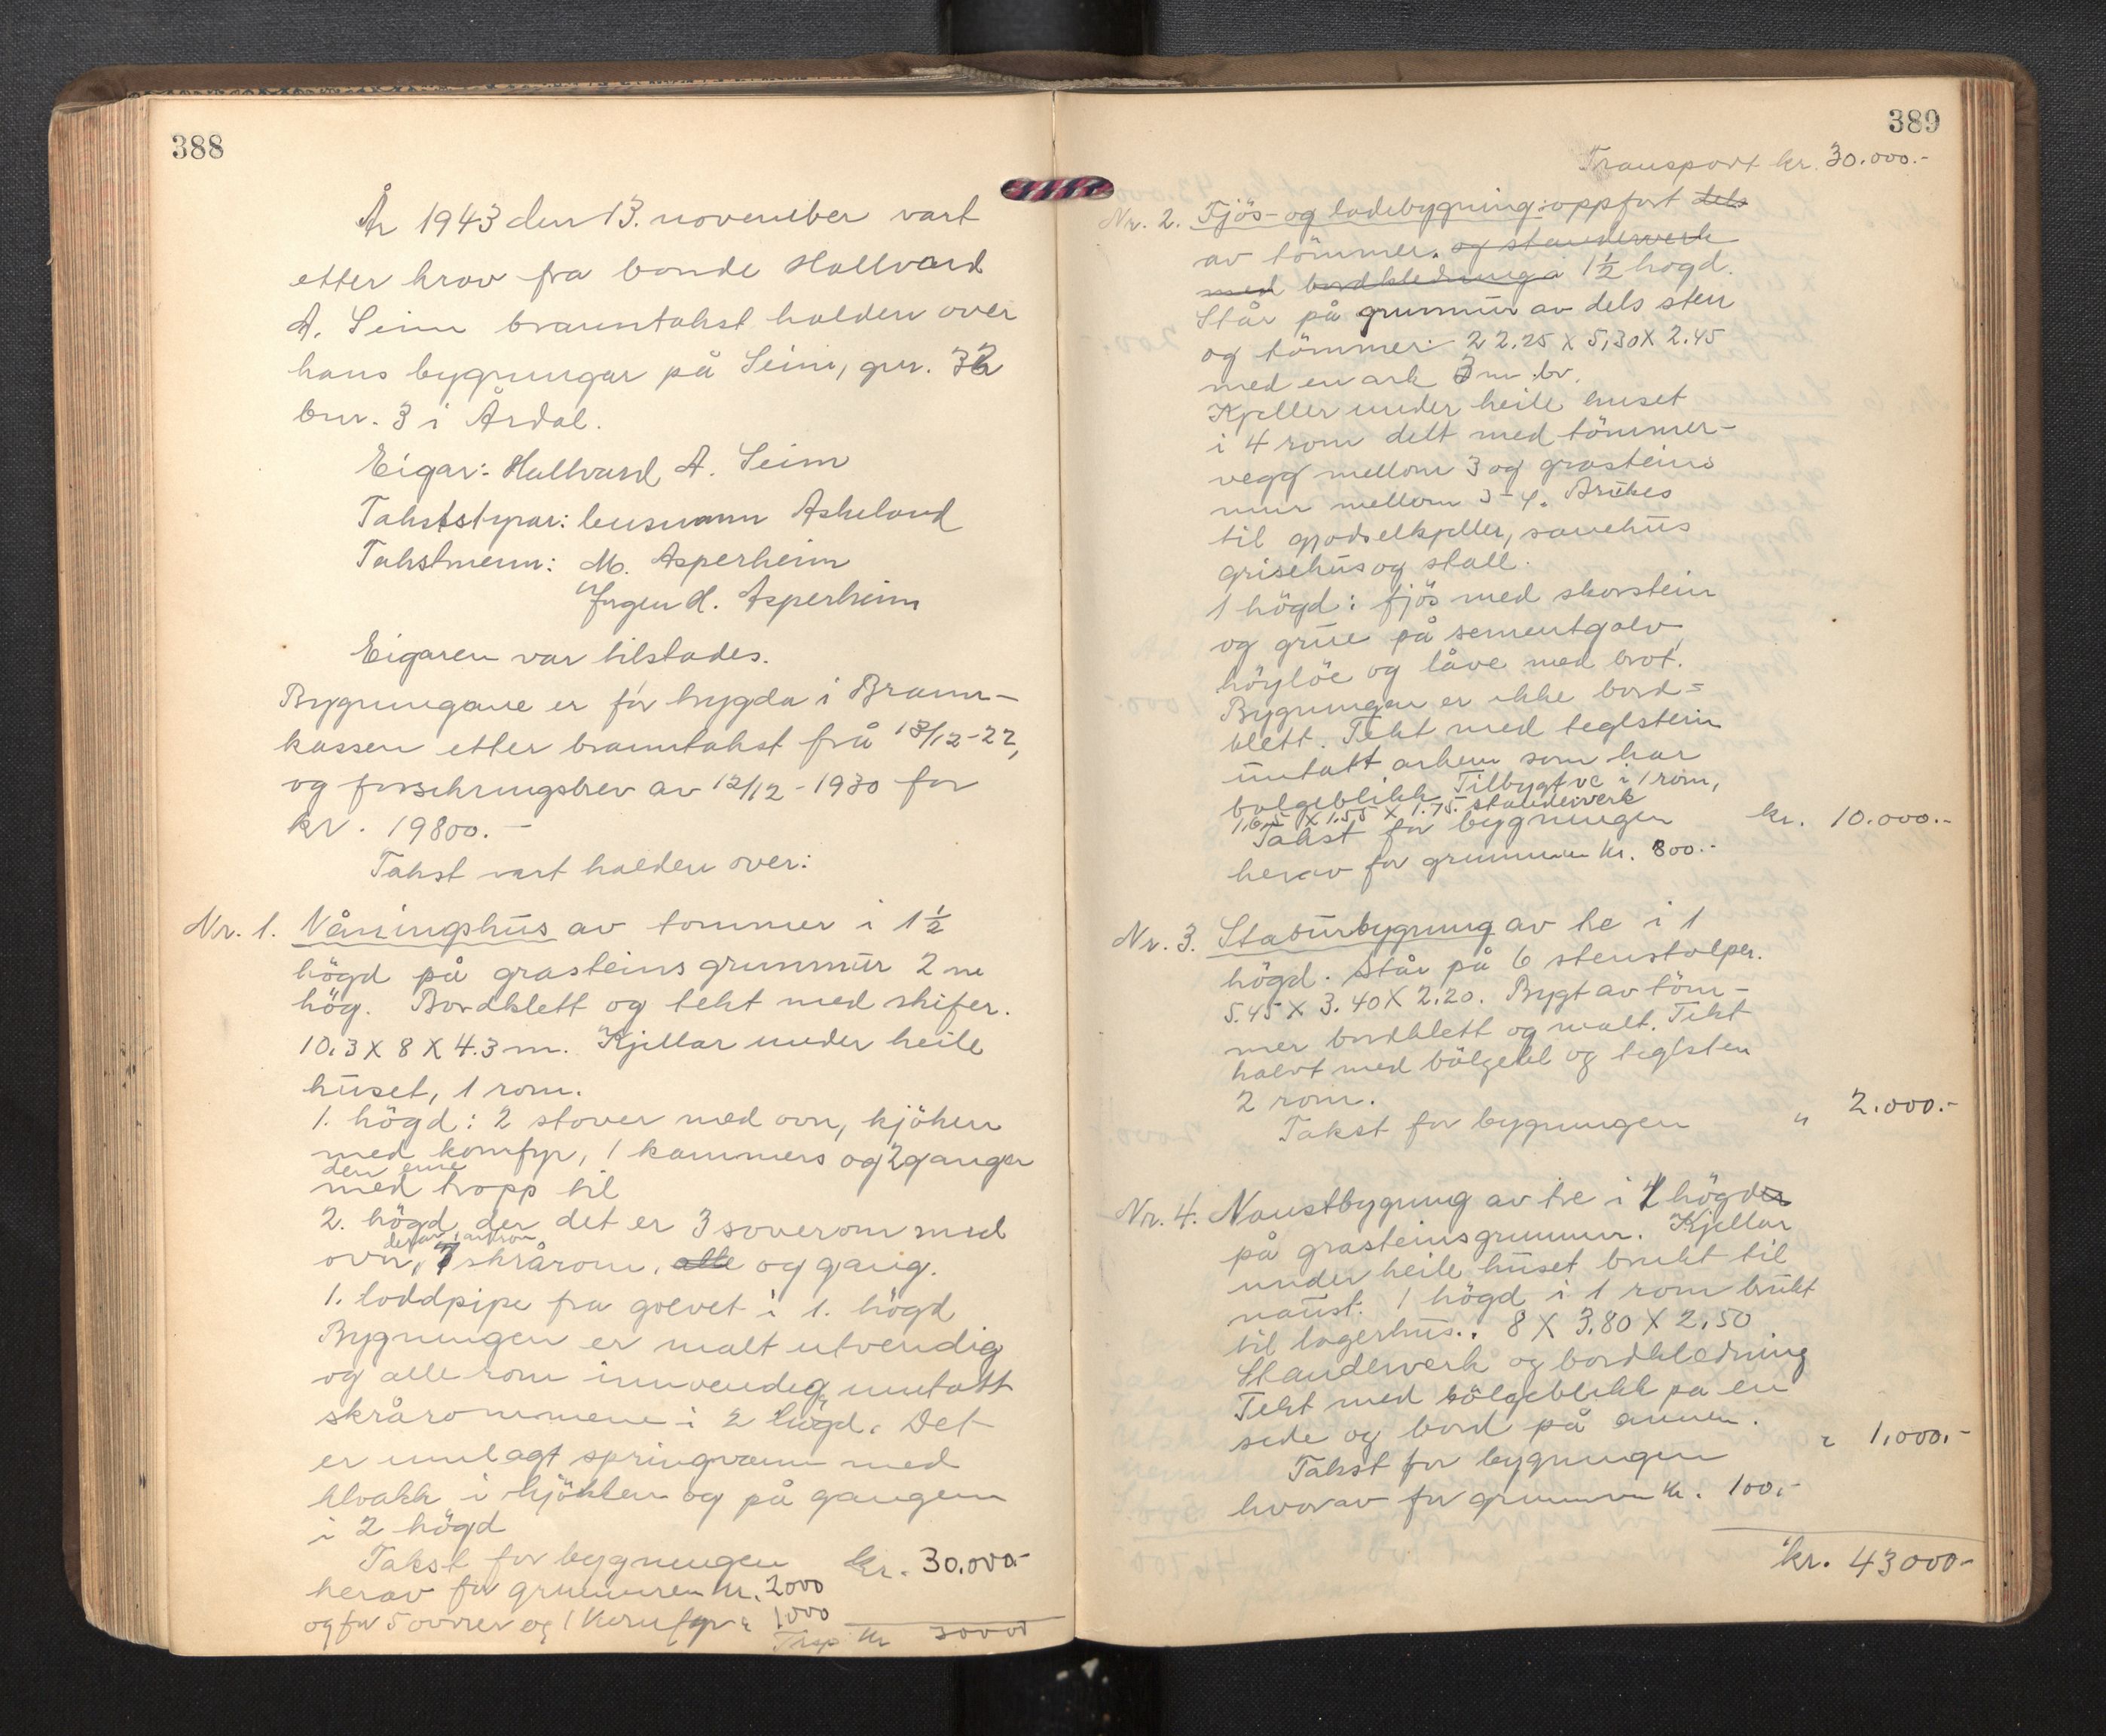 388
År 1943 den 13. november vart
etter krav fra bonde Hallvard
A. Seim branntakst halden over
hans bygningar på Seim, gnr. 32
bnr. 3 i Årdal.
Eigar: Hallvard A. Seim
Takststyrar: lensmann Askeland
Takstmenn: M. Asperheim
Jørgen H. Asperheim
Eigaren var tilstades.
Bygningane er før trygda i Brann-
kassen etter branntakst frå 13/12-22,
og forsikringsbrev av 12/12-1930 for
kr. 19800.-
Takst vart halden over:
Nr. 1. Våningshus av tømmer i 1½
högd på grasteins grunnmur 2 m
hög. Bordklett og tekt med skifer.
10.3 X 8 X 4.3 m. Kjellar under heile
huset, 1 rom.
1. högd: 2 stover med ovn, kjöken
med komfyr, 1 kammers og 2 ganger
den eine
med tropp til
2. högd der det er 3 soverom med
derav
ovn, 7 skrårom, alle og gang.
1. loddpipe fra golvet i 1. högd
Bygningen er malt utvendig
og alle rom innvendig unntatt
skrårommene i 2 högd. Det
er innlagt springvann med
klvakk i kjökken og på gangen
i 2 högd
Takst for bygningen kr. 30.000.-
herav for grunnmuren kr. 2000
og for 5 ovner og 1 komfyr " 1000
Trsp kr 30000
389
Transport kr. 30.000.-
Nr. 2. Fjös- og ladebygning: oppfört dels
av tömmer. og standerverk
med bordkledning i 1½ högd.
Står på grunnmur av dels sten
og tömmer. 22.25 X 5,30 X 2.45
med en ark 3 m br.
Kjeller under heile huset
i 4 rom delt med tömmer-
vegg mellom 3 og grasteins
mur mellom 3-4. Brukes
til gjødselkjeller, sauehus
grisehus og stall.
1 högd: fjös med skorstein
og grue på sementgolv,
höylöe og låve med brot.
Bygningen er ikke bord=
klett. Tekt med teglstein
untatt arken som har
bølgeblikk. Tilbygt vc i 1 rom,
1,65 X 1,55 X 1.75. standerverk
Takst for bygningen kr. 10.000.-
herav for grunnmuren kr. 800.-
Nr. 3. Stabursbygning av tre i 1
högd. Står på 6 stenstolper.
5.45 X 3.40 X 2.20. Bygt av töm-
mer bordklett og malt. Tekt
halvt med bölgebl og teglsten
2 rom.
Takst for bygningen " 2.000.-
Nr. 4. Naustbygning av tre i 1 högder
på grasteinsgrunnmur. Kjellar
under heile huset brukt til
naust. 1 högd i 1 rom brukt
til lagerhus. 8 X 3,80 X 2,50
Standerverk og bordkledning
Tekt med bölgeblikk på en
side og bord på annen.
Takst for bygningen " 1,000.-
hvorav for grunnmuren kr. 100.-
kr. 43000-